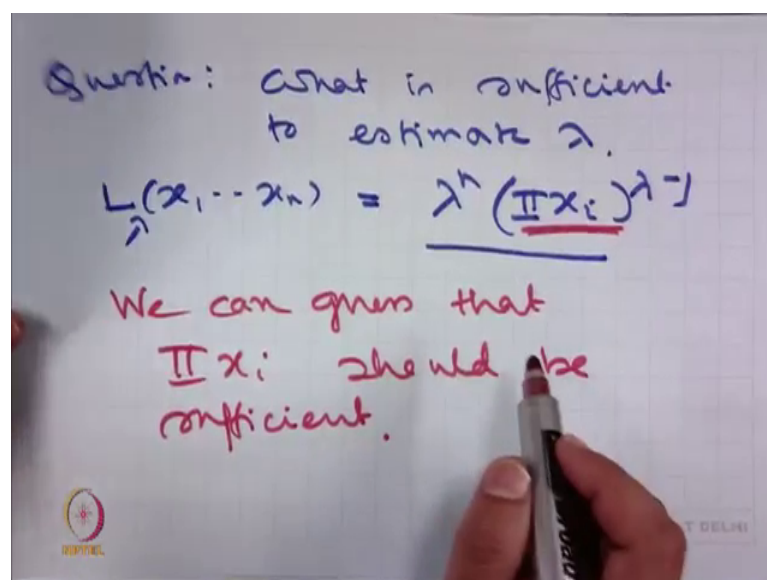 Question: What is sufficient
to estimate λ.
L_λ(x₁ -- xₙ) = λⁿ (Πxᵢ)^(λ-1)
We can guess that
Πxᵢ should be
sufficient.
NPTEL
T DELHI